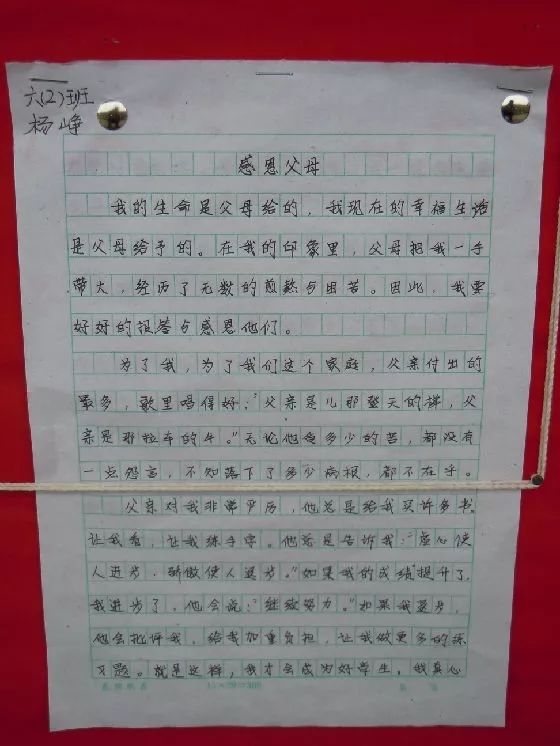 六(2)班
杨峥
感恩父母
我的生命是父母给的，我现在的幸福生活
是父母给予的。在我的印象里，父母把我一手
带大，经历了无数的煎熬与困苦。因此，我要
好好的报答与感恩他们。
为了我，为了我们这个家庭，父亲付出的
最多，歌里唱得好：“父亲是儿那登天的梯，父
亲是那拉车的牛。”无论他受多少的苦，都没有
一点怨言，不知落下了多少病根，都不在乎。
父亲对我非常严厉，他总是给我买许多书
让我看，让我练手字。他总是告诉我：“虚心使
人进步，骄傲使人退步。”如果我的成绩提升了，
我进步了，他会说：“继续努力。”如果我退步，
他会批评我，给我加重负担，让我做更多的练
习题。就是这样，我才会成为好学生，我真心